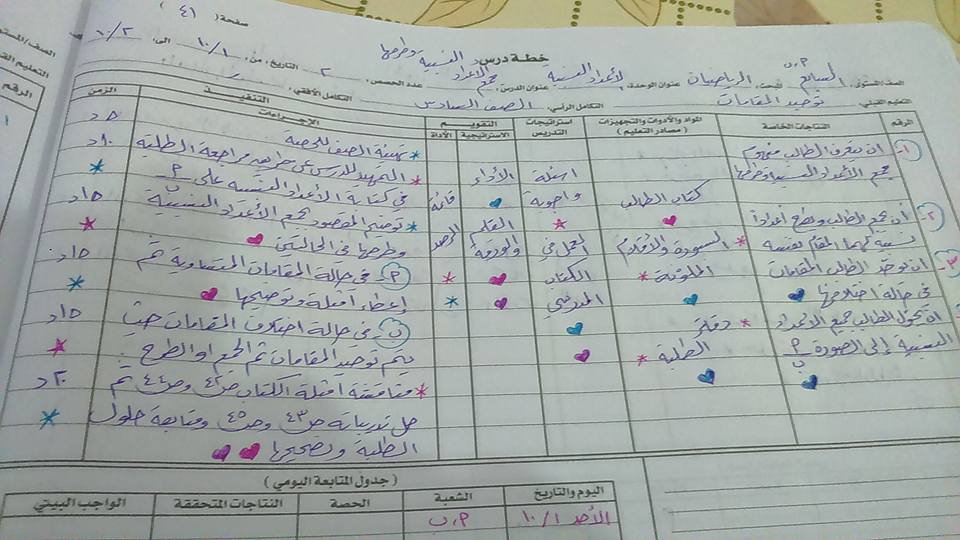 صفحة ( ٤١ )
خطة درس جمع الأعداد النسبية وطرحها
الصف/المستوى السابع أ، ب المبحث الرياضيات عنوان الوحدة الأعداد النسبية عنوان الدرس عدد الحصص ٢ التاريخ، من ١٠/١ الى، ١٠/٢
التعليم القبلي: توحيد المقامات التكامل الرأسي: الصف السادس التكامل الأفقي:
الرقم النتاجات الخاصة المواد والأدوات والتجهيزات ( مصادر التعليم ) استراتيجيات التدريس التقويم الاستراتيجية الأداة التنفيذ الإجراءات الزمن
١- ان يتعرف الطالب مفهوم
جمع الأعداد النسبية وطرحها
٢- أن يجمع الطالب ويطرح أعداداً
نسبية لهما المقام نفسه
٣- ان يوحد الطالب المقامات
في حالة اختلافها
ان يحول الطالب جميع الأعداد
النسبية إلى الصورة أ/ب
كتاب الطالب
* السبورة والأقلام
الملونة *
* دفاتر
الطلبة *
اسئلة
واجوبة
العمل في
الكتاب
المدرسي
الأداء
القلم
والورقة
قائمة
الرصد
* تهيئة الصف للحصة
* التمهيد للدرس عن طريق مراجعة الطلبة
في كتابة الأعداد النسبية على أ/ب
* توضيح المقصود بجمع الأعداد النسبية
وطرحها في الحالتين
أ في حالة المقامات المتساوية ثم
إعطاء امثلة وتوضيحها
ب في حالة اختلاف المقامات حيث
يتم توحيد المقامات ثم الجمع او الطرح
* مناقشة امثلة الكتاب ص٤٢ وص٤٤ ثم
حل تدريبات ص٤٣ وص٤٥ ومتابعة حلول
الطلبة وتصحيحها
٥ د
١٠ د
١٥ د
١٥ د
١٥ د
٢٠ د
( جدول المتابعة اليومي )
اليوم والتاريخ الشعبة الحصة النتاجات المتحققة الواجب البيتي
الأحد ١٠/١ أ، ب
الصف/المستوى
التعليم
الرقم
١